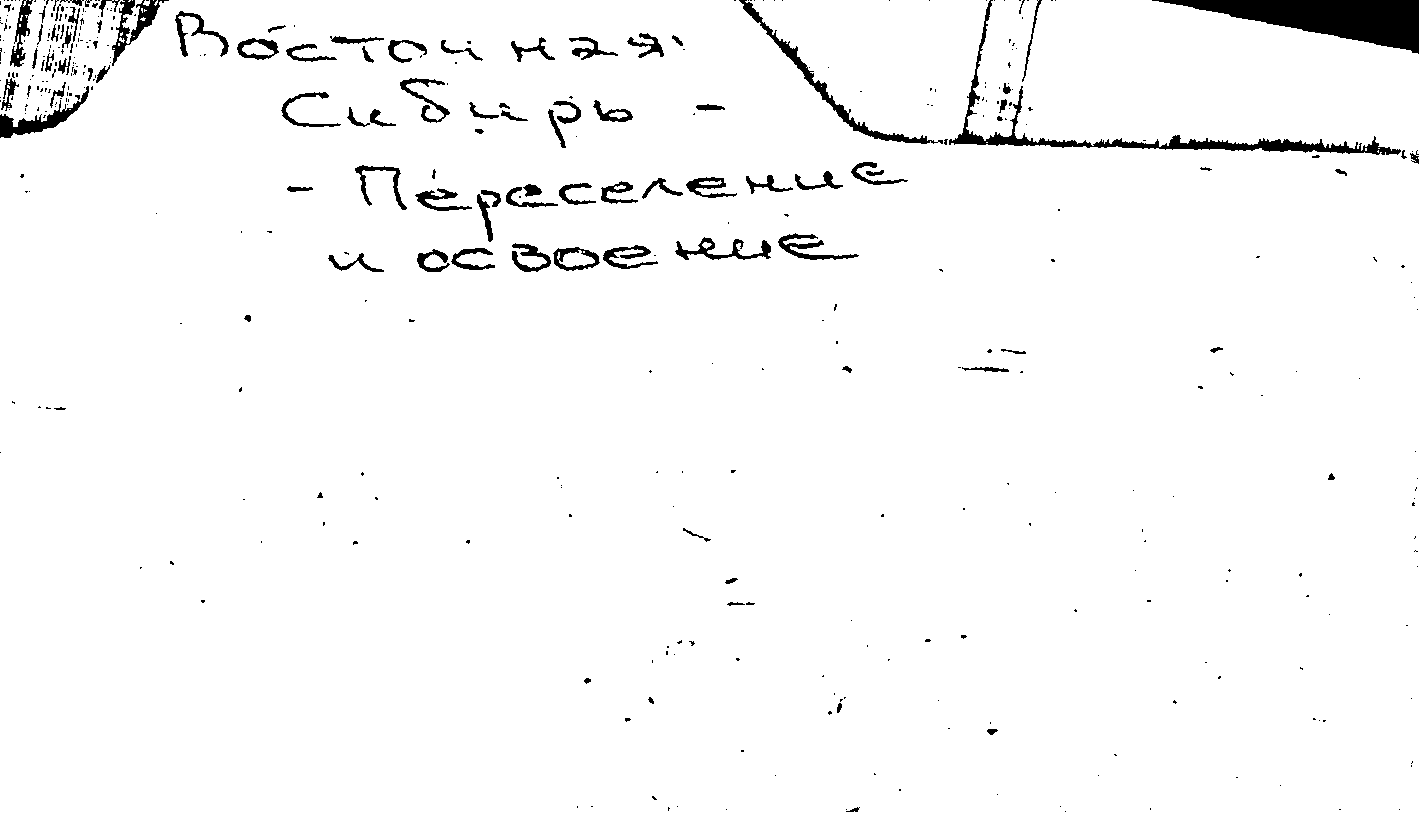 Восточная
Сибирь -
- Переселение
и освоение